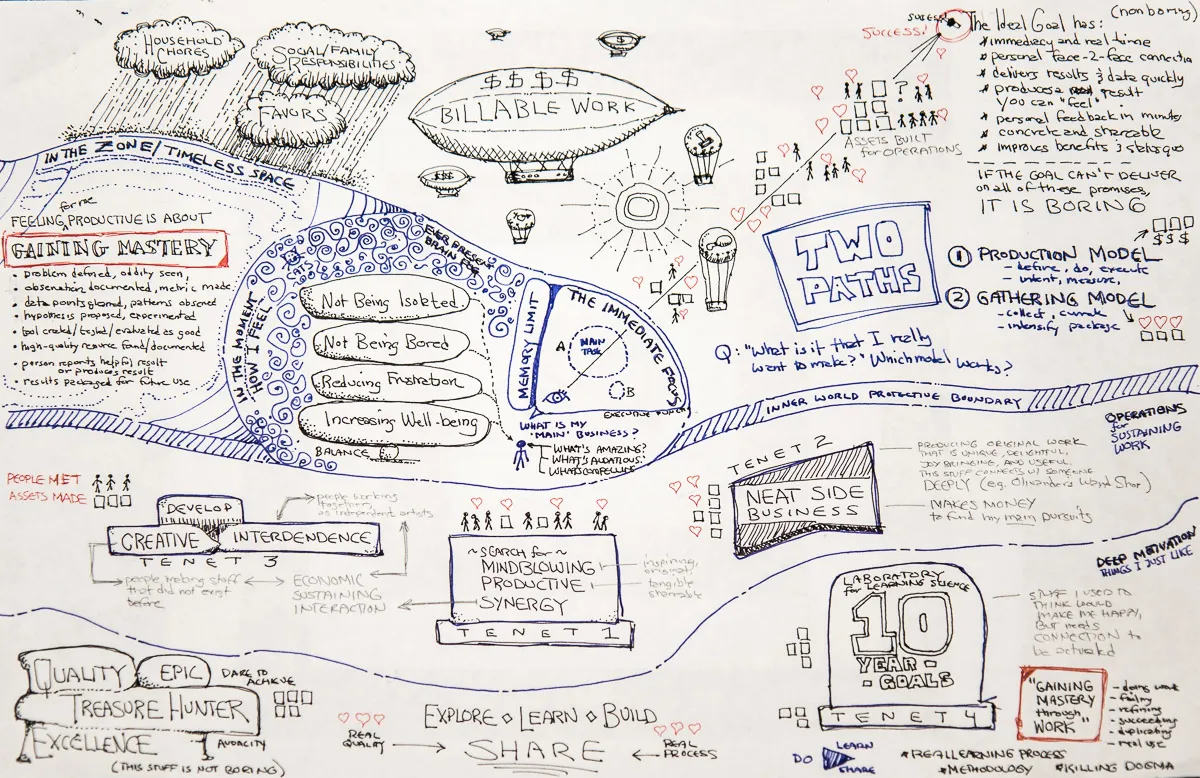 HOUSEHOLD
CHORES
SOCIAL/FAMILY
RESPONSIBILITIES
FAVORS
$$$$
BILLABLE WORK
$$$
SUCCESS!
SUCCESS!
The Ideal Goal has:
(nonboring)
* immediacy and real time
* personal face-2-face connectio
* delivers results & data quickly
* produces a result
you can "feel".
* personal feedback in minutes
* concrete and shareable
* improves benefits & status quo
IF THE GOAL CAN'T DELIVER
on all of these promises,
IT IS BORING
ASSETS BUILT
for OPERATIONS
?
IN THE ZONE/TIMELESS SPACE
for me
FEELING PRODUCTIVE IS ABOUT
GAINING MASTERY
• problem defined, oddity seen
• observation documented, metric made
• data points gleaned, patterns observed
• hypothesis proposed, experimented
• tool created/tested/evaluated as good
• high-quality resource found/documented
• person reports helpful result
or produces result
• results packaged for future use
IN THE MOMENT
"HOW I FEEL"
EVER PRESENT
BRAIN FOG
Not Being Isolated
Not Being Bored
Reducing Frustration
Increasing Well-being
BALANCE
MEMORY LIMIT
THE IMMEDIATE FOCUS
A
MAIN
TASK
B
WHAT IS MY
"MAIN" BUSINESS?
WHAT'S AMAZING?
TWO
PATHS
1 PRODUCTION MODEL
- define, do, execute
- intent, measure,
$$$
2 GATHERING MODEL
- collect, curate
- intensify package
Q: "What is it that I really
want to make?" Which model works?
INNER WORLD PROTECTIVE BOUNDARY
OPERATIONS
for
SUSTAINING
WORK
PEOPLE MET
ASSETS MADE
DEVELOP
CREATIVE INTERDENDENCE
TENET 3
people working
together
as independent artists
people making stuff
that did not exist
before
ECONOMIC
SUSTAINING
INTERACTION
~SEARCH for~
MINDBLOWING
PRODUCTIVE
SYNERGY
TENET 1
inspiring,
original
tangible
shareable
TENET 2
NEAT SIDE
BUSINESS
PRODUCING ORIGINAL WORK
THAT IS UNIQUE, DELIGHTFUL,
JOY BRINGING, AND USEFUL.
THIS STUFF CONNECTS w/ SOMEONE
DEEPLY (e.g. Olivander's Wand Shop)
MAKES MONEY
to fund my main pursuits
DEEP MOTIVATION
THINGS I JUST LIKE
LABORATORY
for LEARNING SCIENCE
10
YEAR-
-GOALS
TENET 4
STUFF I USED TO
THINK WOULD
MAKE ME HAPPY,
BUT needs
CONNECTION to
be activated
QUALITY
EPIC
DARE TO
ACHIEVE
TREASURE HUNTER
EXCELLENCE
AUDACITY
(THIS STUFF IS NOT BORING)
EXPLORE LEARN BUILD
REAL
QUALITY
SHARE
REAL
PROCESS
"GAINING
MASTERY
through
WORK"
- doing work
- failing
- refining
- succeeding
- duplicating
- real use
DO
LEARN
SHARE
*REAL LEARNING PROCESS
*METHODOLOGY
*KILLING DOGMA